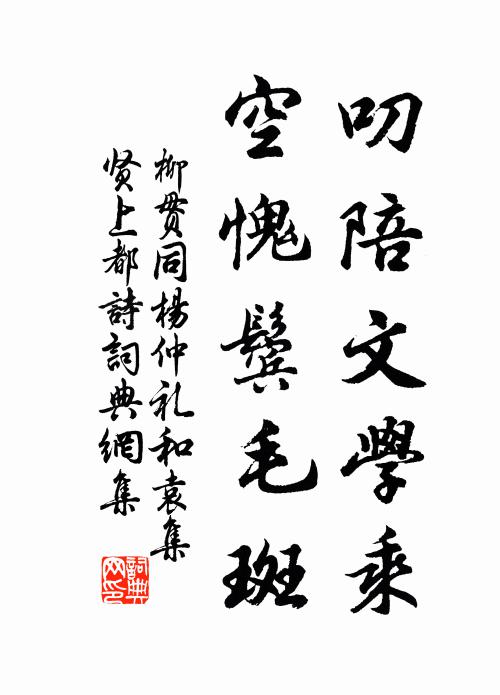 叨陪文學乘
空愧鬢毛斑
柳贯同楊仲礼和袁集
贤上都詩詞典網集
詞典网印